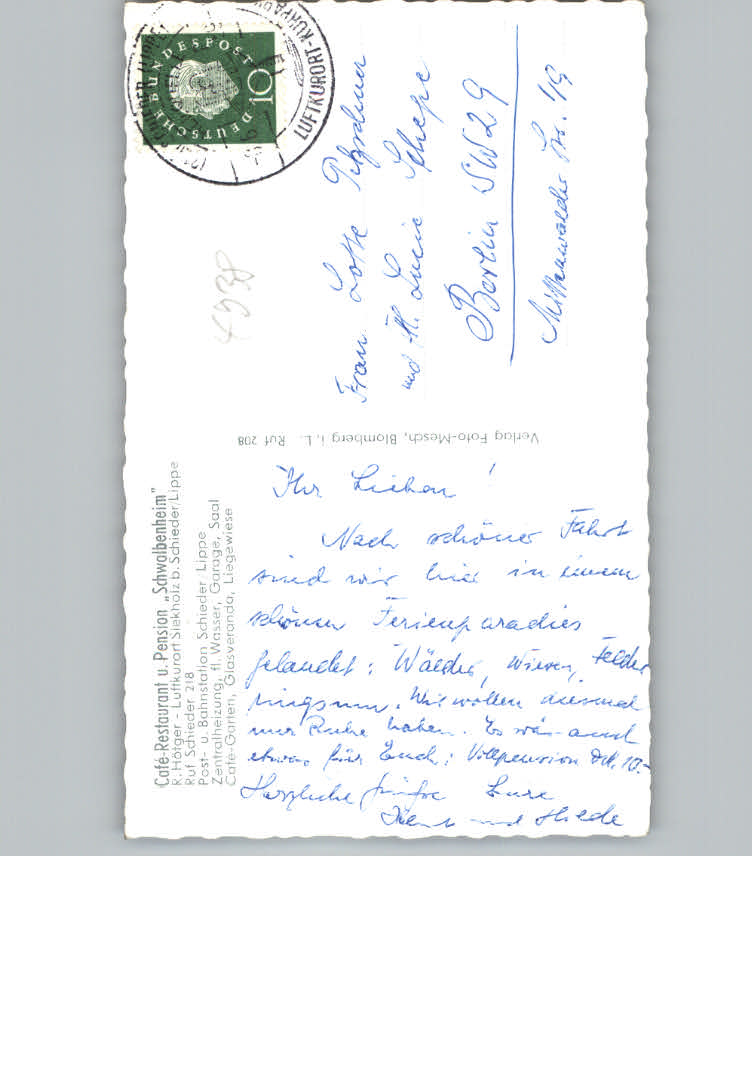 Café-Restaurant u. Pension „Schwalbenheim"
R. Hötger - Luftkurort Siekholz b. Schieder/Lippe
Ruf Schieder 218
Post- u. Bahnstation Schieder/Lippe
Zentralheizung, fl. Wasser, Garage, Saal
Café-Garten, Glasveranda, Liegewiese
Ihr Lieben!
Nach schöner Fahrt
sind wir hier in einem
schönen Ferienparadies
gelandet: Wälder, Wiesen, Felder
ringsum. Wir wollen diesmal
nur Ruhe haben. Es wär auch
etwas für Euch: Vollpension DM. 10.-
Herzliche Grüße Eure
und Hede
Verlag Foto-Mesch, Blomberg i. L. Ruf 208
DEUTSCHE BUNDESPOST
10
LUFTKURORT-KURPARK
4938
Frau Lotte
und Frl. Lucie Schepe
Berlin SW 29
Mittenwalder Str. 49